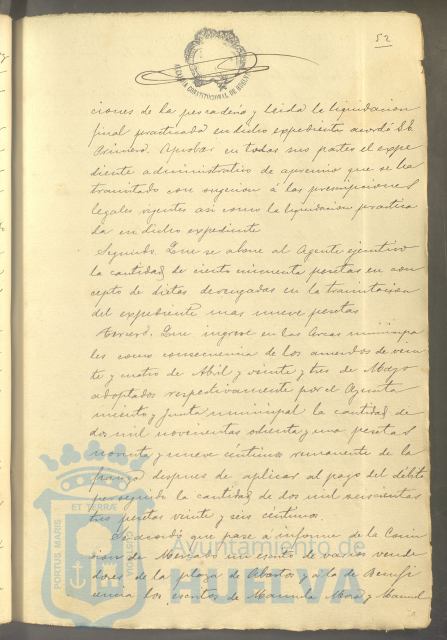 52
ALCALDIA CONSTITUCIONAL DE HUELVA
ciones de la pescaderia y leida la liquidacion
final practicada en dicho expediente acordó S.E.
Primero. Aprobar en todas sus partes el expe
diente administrativo de apremio que se ha
tramitado con sugecion á las prescripciones
legales vigentes asi como la liquidacion practica
da en dicho expediente
Segundo. Que se abone al Agente ejecutivo
la cantidad de ciento cincuenta pesetas en con
cepto de dietas devengadas en la tramitacion
del expediente mas nueve pesetas
Tercero. Que ingrese en las Arcas municipa
les como consecuencia de los acuerdos de vein
te y cuatro de Abril y veinte y tres de Mayo
adoptados respectivamente por el Ayunta
miento y Junta municipal la cantidad de
dos mil novecientas ochenta y una pesetas
noventa y nueve céntimos remanente de la
fianza despues de aplicar al pago del débito
perseguido la cantidad de dos mil seiscientas
tres pesetas veinte y seis céntimos
Se acordó que pase a informe de la Comi
sion de un escrito de varios vende
dores de la plaza de Abastos y a la de Benefi
cencia los escritos de Manuela Mora y Manuel
PORTUS MARIS ET TERRÆ
Ayuntamiento de
HUELVA